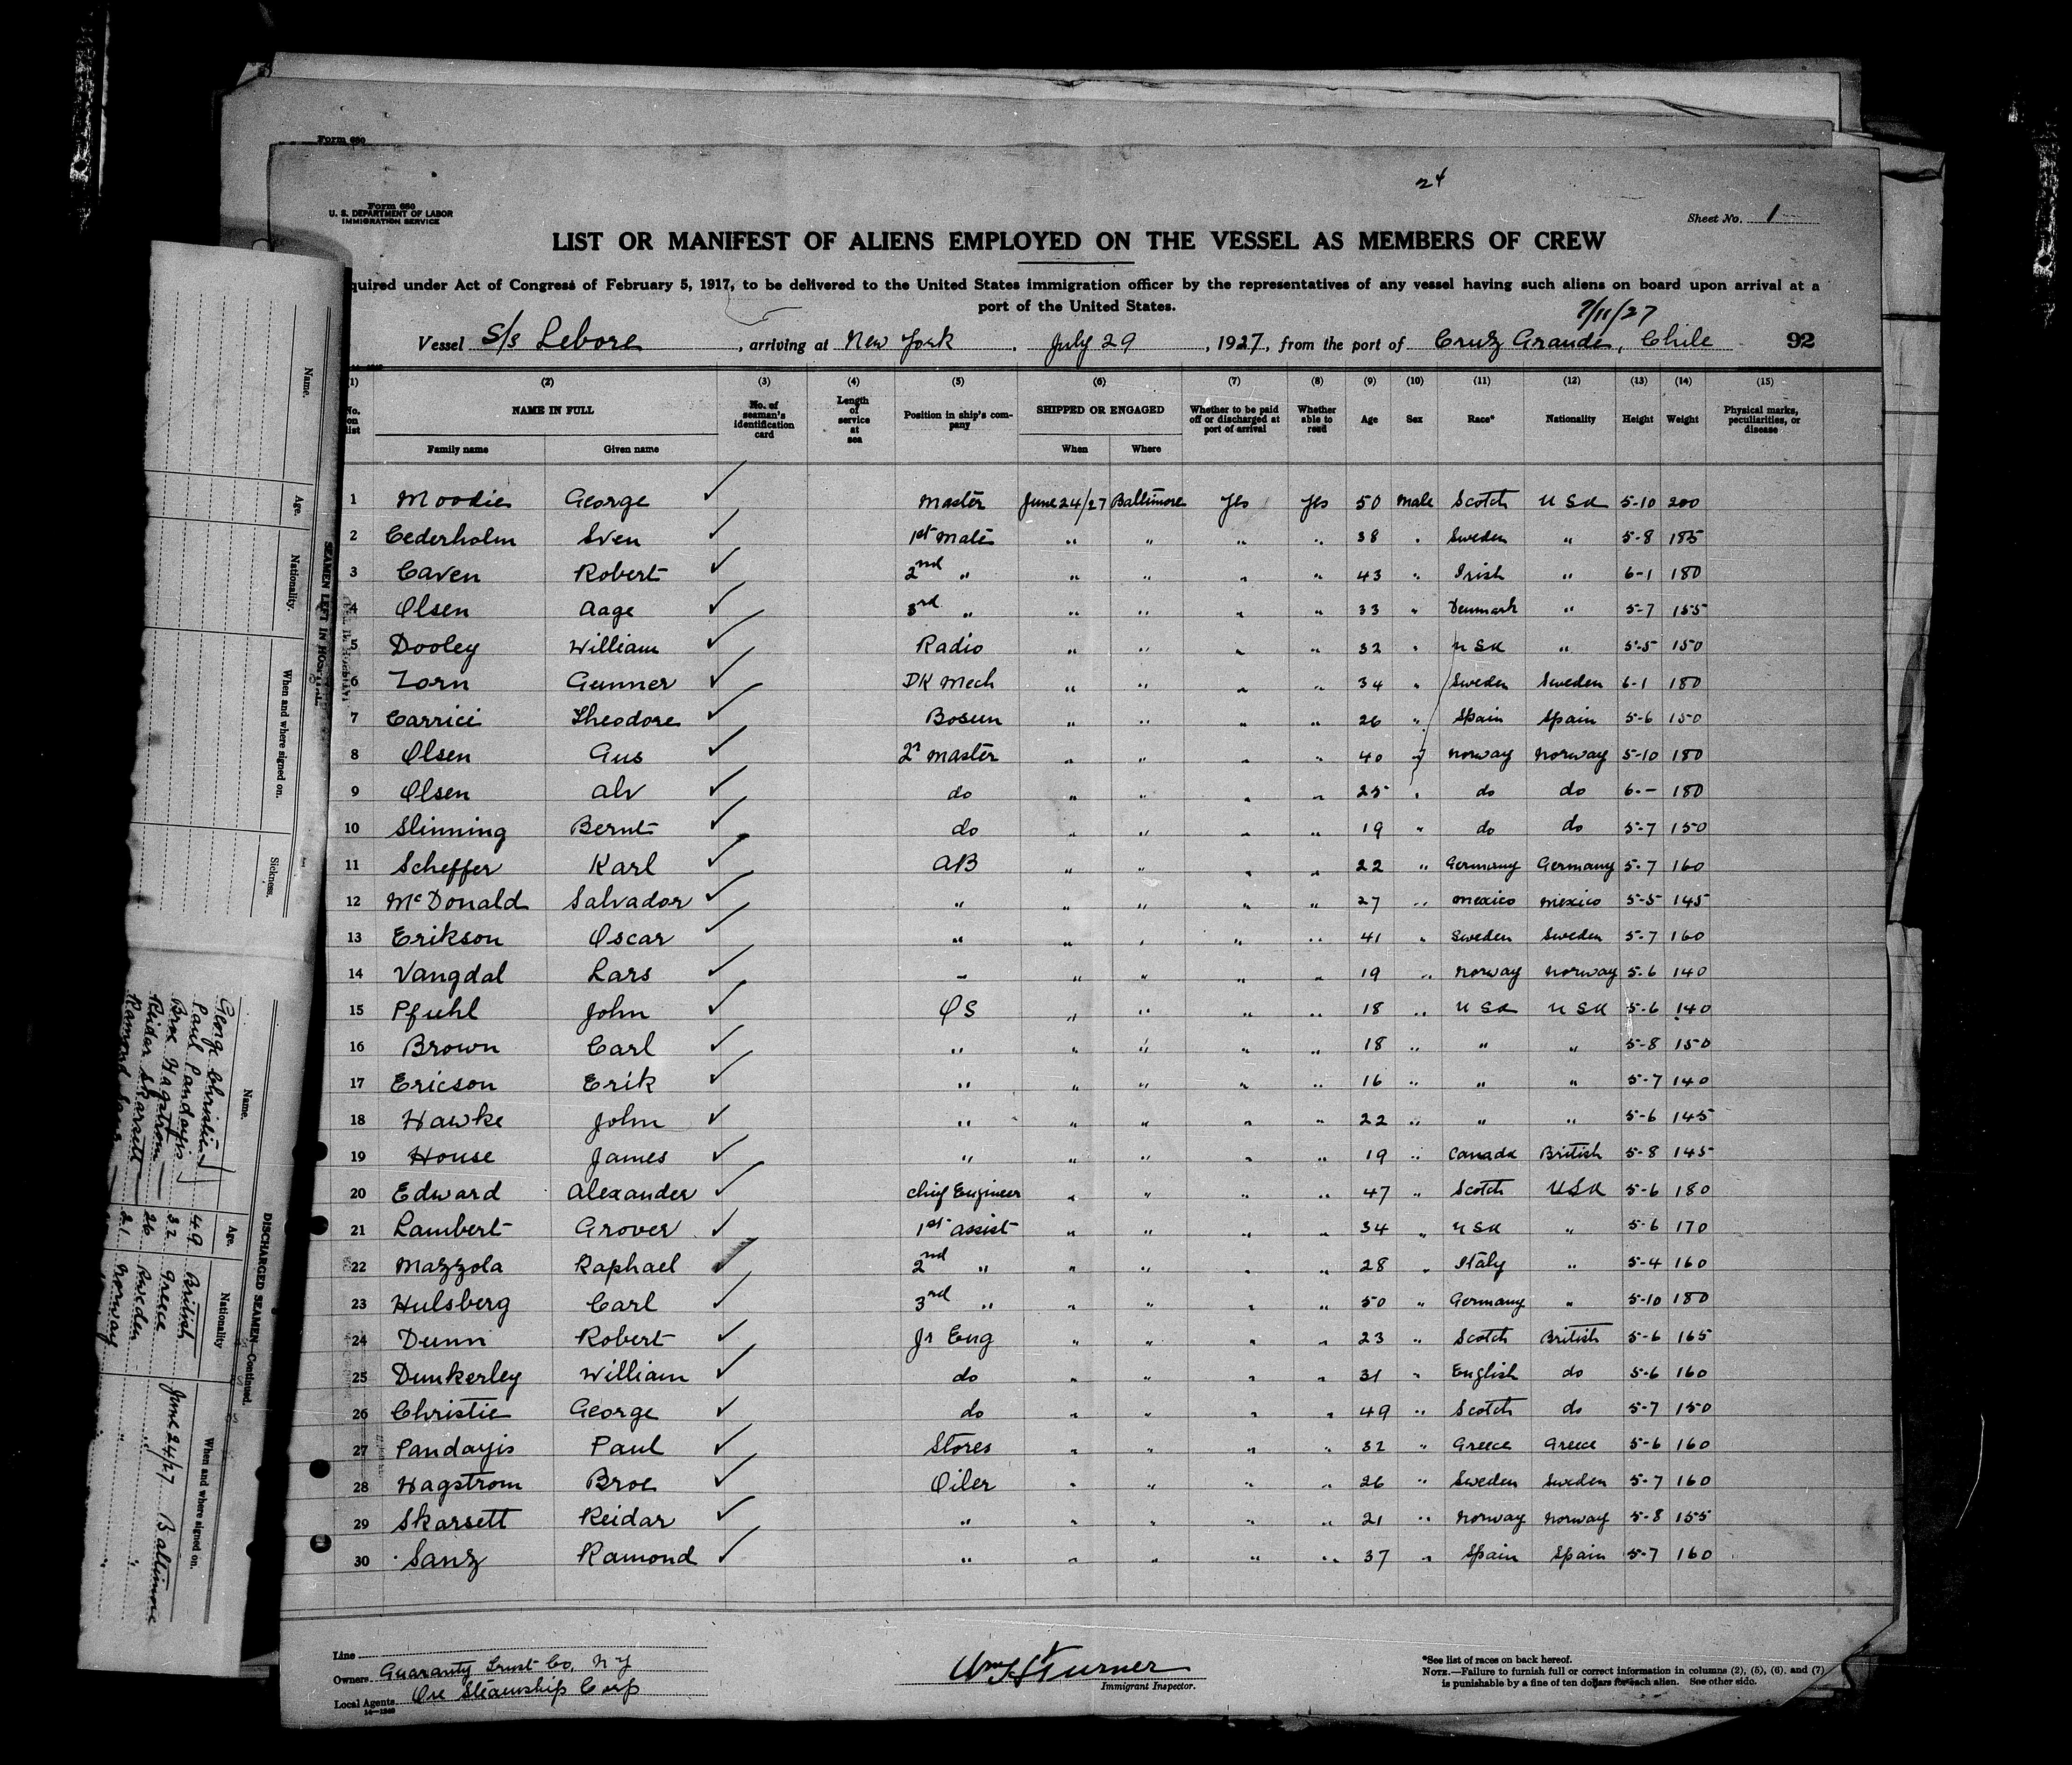 Form 680
Form 680
U. S. DEPARTMENT OF LABOR
IMMIGRATION SERVICE
24
Sheet No. 1
LIST OR MANIFEST OF ALIENS EMPLOYED ON THE VESSEL AS MEMBERS OF CREW
quired under Act of Congress of February 5, 1917, to be delivered to the United States immigration officer by the representatives of any vessel having such aliens on board upon arrival at a
port of the United States.
7/11/27
Vessel S/s Lebore, arriving at New York, July 29, 1927, from the port of Cruz Grande, Chile 92
(1) (2) (3) (4) (5) (6) (7) (8) (9) (10) (11) (12) (13) (14) (15)
No. on list NAME IN FULL No. of seaman's identification card Length of service at sea Position in ship's company SHIPPED OR ENGAGED Whether to be paid off or discharged at port of arrival Whether able to read Age Sex Race* Nationality Height Weight Physical marks, peculiarities, or disease
Family name Given name When Where
1 Moodie George ✓ Master June 24/27 Baltimore Yes Yes 50 Male Scotch USA 5-10 200
2 Cederholm Sven ✓ 1st Mate " " " " 38 " Sweden " 5-8 185
3 Caven Robert ✓ 2nd " " " " " 43 " Irish " 6-1 180
4 Olsen Aage ✓ 3rd " " " " " 33 " Denmark " 5-7 155
5 Dooley William ✓ Radio " " " " 32 " USA " 5-5 150
6 Zorn Gunner ✓ DK Mech " " " " 34 " Sweden Sweden 6-1 180
7 Carrici Theodore ✓ Bosun " " " " 26 " Spain Spain 5-6 150
8 Olsen Gus ✓ 2r Master " " " " 40 " Norway Norway 5-10 180
9 Olsen Alv ✓ do " " " " 25 " do do 6-- 180
10 Slinning Bernt ✓ do " " " " 19 " do do 5-7 150
11 Scheffer Karl ✓ AB " " " " 22 " Germany Germany 5-7 160
12 McDonald Salvador ✓ " " " " " 27 " Mexico Mexico 5-5 145
13 Erikson Oscar ✓ " " " " " 41 " Sweden Sweden 5-7 160
14 Vangdal Lars ✓ " " " " " 19 " Norway Norway 5-6 140
15 Pfuhl John ✓ OS " " " " 18 " USA USA 5-6 140
16 Brown Carl ✓ " " " " " 18 " " " 5-8 150
17 Ericson Erik ✓ " " " " " 16 " " " 5-7 140
18 Hawke John ✓ " " " " " 22 " " " 5-6 145
19 House James ✓ " " " " " 19 " Canada British 5-8 145
20 Edward Alexander ✓ Chief Engineer " " " " 47 " Scotch USA 5-6 180
21 Lambert Grover ✓ 1st assist " " " " 34 " USA " 5-6 170
22 Mazzola Raphael ✓ 2nd " " " " " 28 " Italy " 5-4 160
23 Hulsberg Carl ✓ 3rd " " " " " 50 " Germany " 5-10 180
24 Dunn Robert ✓ Jr Eng " " " " 23 " Scotch British 5-6 165
25 Dunkerley William ✓ do " " " " 31 " English do 5-6 160
26 Christie George ✓ do " " " " 49 " Scotch do 5-7 150
27 Pandayis Paul ✓ Stores " " " " 32 " Greece Greece 5-6 160
28 Hagstrom Broe ✓ Oiler " " " " 26 " Sweden Sweden 5-7 160
29 Skarsett Reidar ✓ " " " " " 21 " Norway Norway 5-8 155
30 Sanz Ramond ✓ " " " " " 37 " Spain Spain 5-7 160
Line
Owners Guaranty Trust Co. NY
Local Agents Ore Steamship Corp
14—1240
Wm H Turner
Immigrant Inspector.
*See list of races on back hereof.
NOTE.—Failure to furnish full or correct information in columns (2), (5), (6), and (7)
is punishable by a fine of ten dollars for each alien. See other side.
SEAMEN LEFT IN HOSPITAL
Name. Age. Nationality. When and where signed on. Sickness.
DISCHARGED SEAMEN—Continued.
Name. Age. Nationality When and where signed on.
George Christie 49 British June 24/27 Baltimore
Paul Pandayis 32 Greece " "
Broe Hagstrom 26 Sweden " "
Reidar Skarsett 21 Norway " "
Ramond Sanz